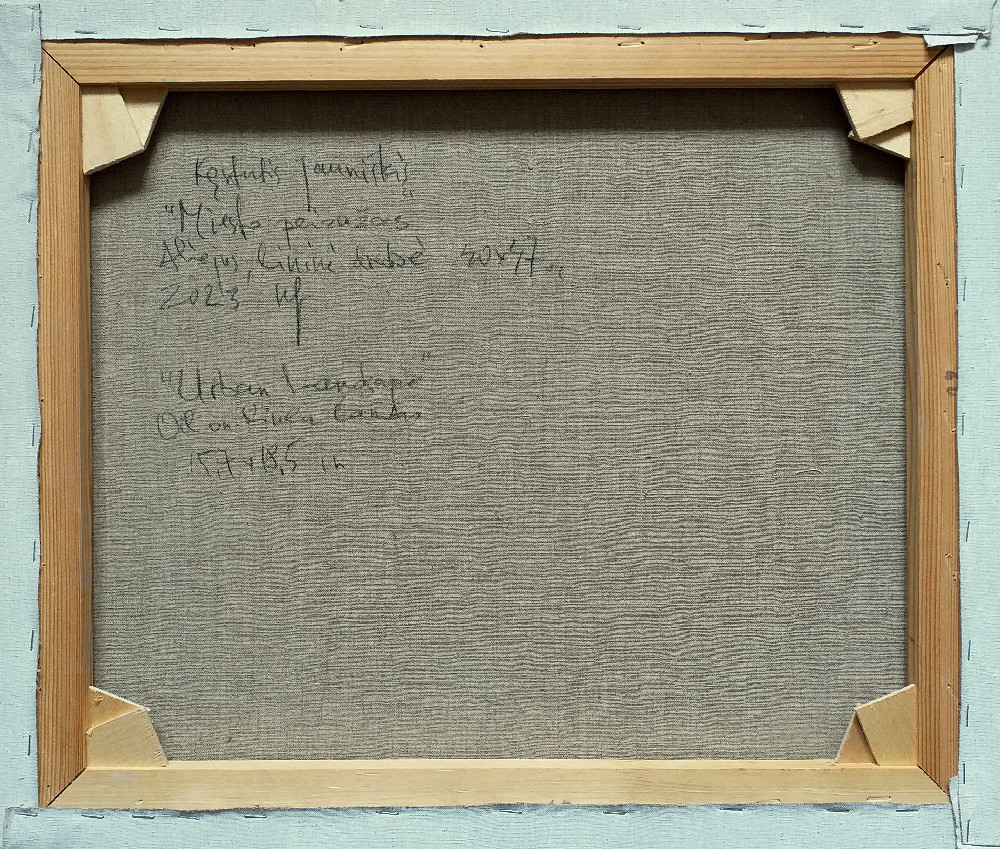 Kęstutis Jauniškis
"Miesto peizažas"
Aliejus, lininė drobė 40x47
2023
"Urban Landscape"
Oil on Linen Canvas
15,7 x 18,5 in